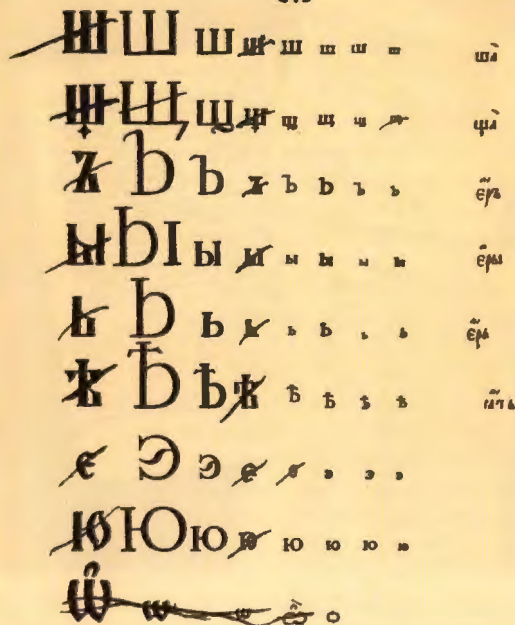 Ш Ш ш ш ш ш ш ш ша̀
Щ Щ щ щ щ щ щ щ ща̀
Ъ Ъ Ъ ъ ъ ъ ъ ъ є҆́ръ
Ы Ы ы ы ы ы ы ы є҆ры̀
Ь Ь Ь ь ь ь ь ь є҆́рь
Ѣ Ѣ ѣ ѣ ѣ ѣ ѣ ѣ ꙗ҆́ть
Є Э э є є э э э
Ю Ю ю ю ю ю ю ю
Ѽ ѡ ѡ ѽ о